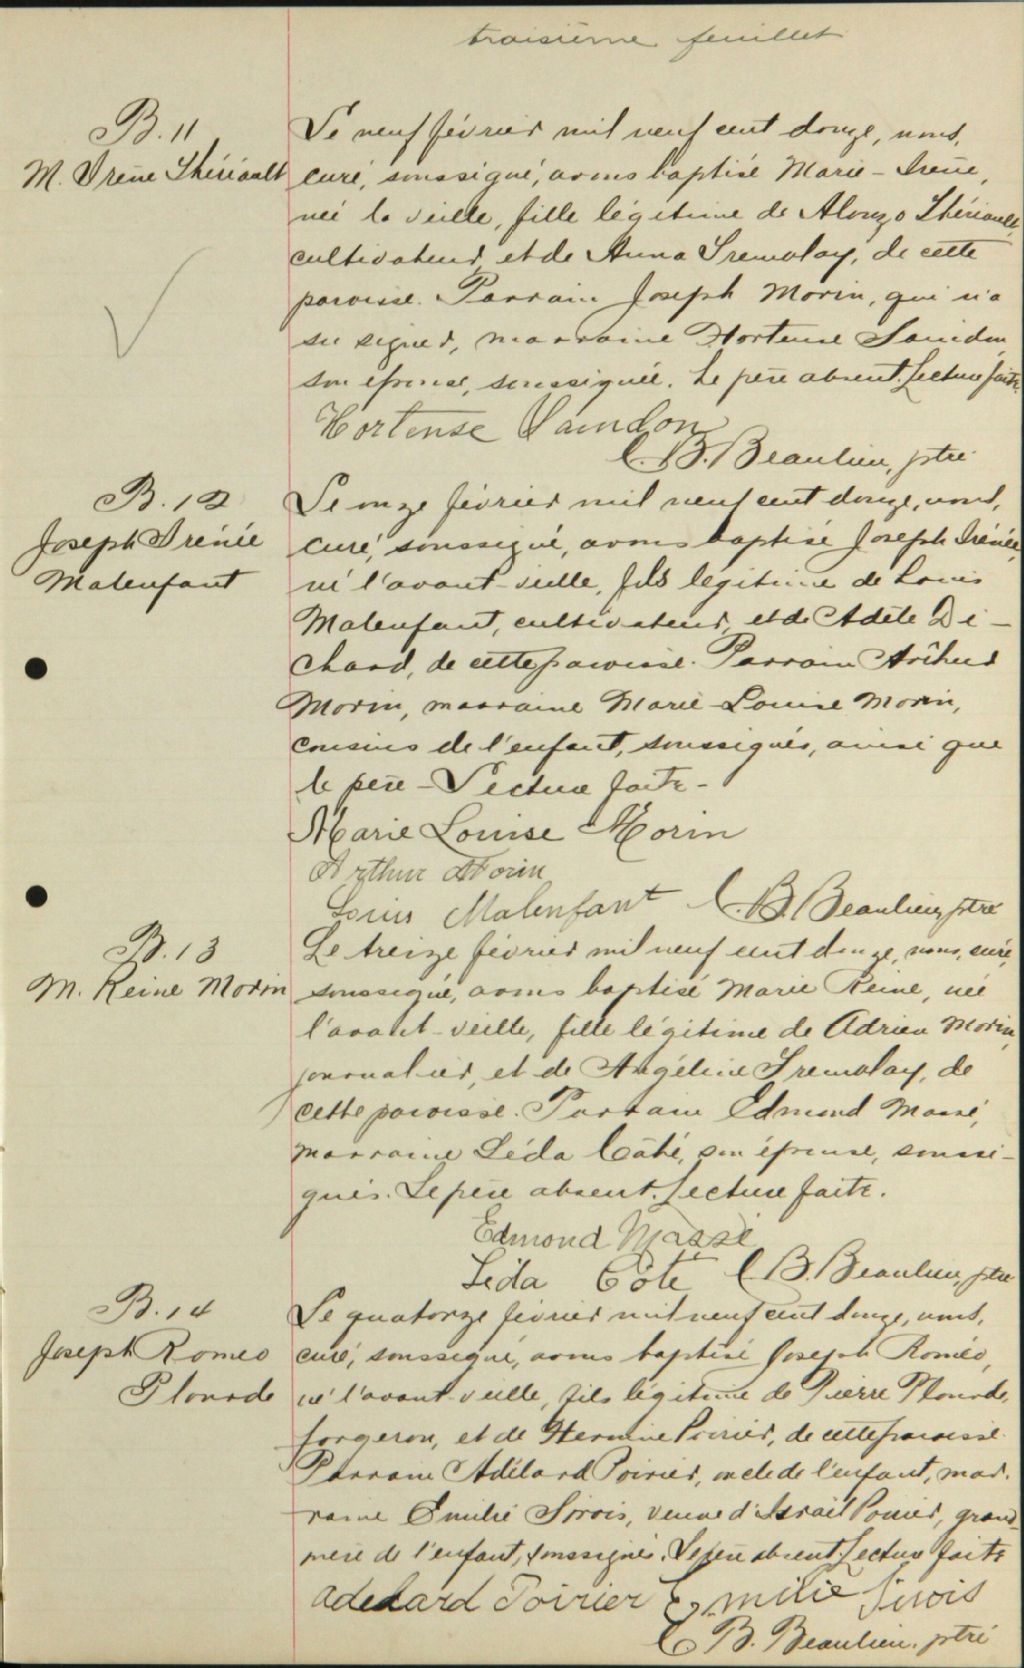 troisième feuillet
B. 11
M. Irène Thériault
Le neuf février mil neuf cent douze, nous,
curé, soussigné, avons baptisé Marie-Irène,
née la veille, fille légitime de Alonzo Thériault,
cultivateur, et de Anna Tremblay, de cette
paroisse. Parrain Joseph Morin, qui n'a
su signer, marraine Hortense Saindon,
son épouse, soussignée. Le père absent. Lecture faite.
Hortense Saindon
C. B. Beaulieu, ptre
B. 12
Joseph Irénée
Malenfant
Le onze février mil neuf cent douze, nous,
curé, soussigné, avons baptisé Joseph Irénée,
né l'avant-veille, fils légitime de Louis
Malenfant, cultivateur, et de Adèle Di-
chard, de cette paroisse. Parrain Arthur
Morin, marraine Marie-Louise Morin,
cousins de l'enfant, soussignés, ainsi que
le père - Lecture faite -
Marie Louise Morin
Arthur Morin
Louis Malenfant C. B. Beaulieu, ptre
B. 13
M. Reine Morin
Le treize février mil neuf cent douze, nous, curé,
soussigné, avons baptisé Marie Reine, née
l'avant-veille, fille légitime de Adrien Morin,
journalier, et de Angéline Tremblay, de
cette paroisse. Parrain Edmond Massé,
marraine Léda Côté, son épouse, soussi-
gnés. Le père absent. Lecture faite.
Edmond Massé
Léda Côté C. B. Beaulieu, ptre
B. 14
Joseph Romeo
Plourde
Le quatorze février mil neuf cent douze, nous,
curé, soussigné, avons baptisé Joseph Roméo,
né l'avant-veille, fils légitime de Pierre Plourde,
forgeron, et de Hermine Poirier, de cette paroisse.
Parrain Adélard Poirier, oncle de l'enfant, mar-
raine Emilie Sirois, veuve d'Israël Poirier, grand-
mère de l'enfant, soussignés. Le père absent. Lecture faite
Adelard Poirier Emilie Sirois
C. B. Beaulieu, ptre